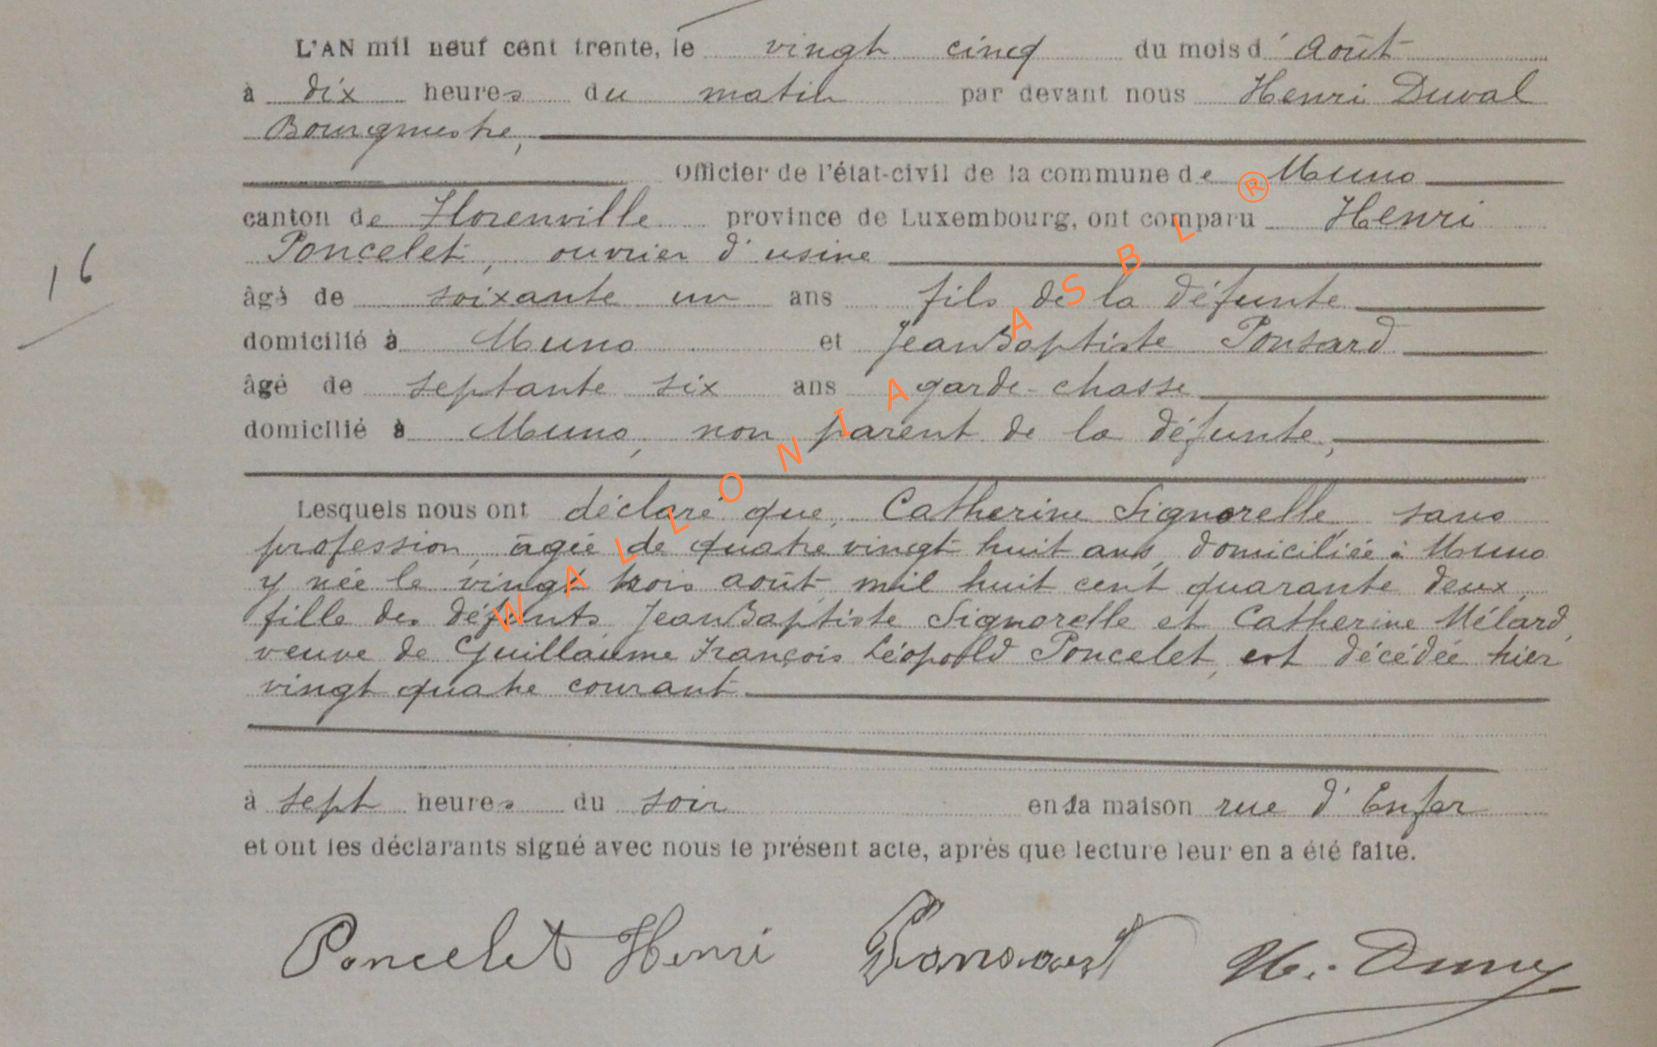 L'AN mil neuf cent trente, le vingt cinq du mois d'Août
à dix heures du matin par devant nous Henri Duval
Bourgmestre,
Officier de l'état-civil de la commune de Muno
canton de Florenville province de Luxembourg, ont comparu Henri
Poncelet, ouvrier d'usine
âgé de soixante un ans fils de la défunte
domicilié à Muno et Jean Baptiste Ponsard
âgé de septante six ans garde-chasse
domicilié à Muno, non parent de la défunte,
Lesquels nous ont déclaré que, Catherine Signorelle, sans
profession, âgée de quatre vingt huit ans, domiciliée à Muno
y née le vingt trois août mil huit cent quarante deux,
fille des défunts Jean Baptiste Signorelle et Catherine Mélard,
veuve de Guillaume François Léopold Poncelet, est décédée hier
vingt quatre courant
à sept heures du soir en sa maison rue d'Enfer
et ont les déclarants signé avec nous le présent acte, après que lecture leur en a été faite.
Poncelet Henri H.
16
WALLONIA ASBL ®